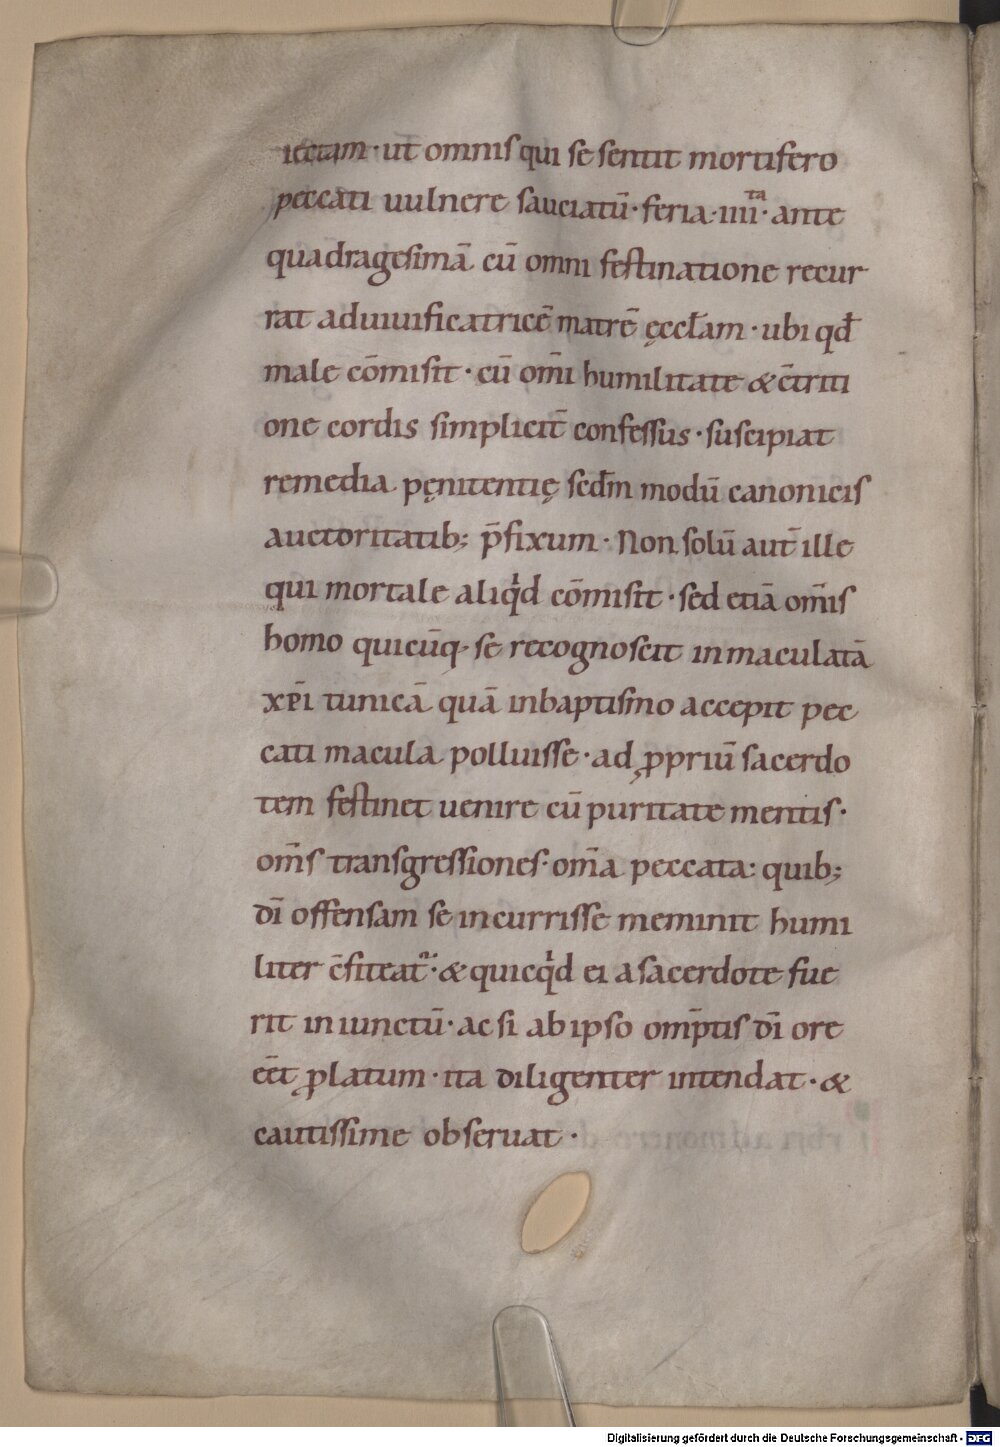 iectam · ut omnis qui se sentit mortifero
peccati uulnere sauciatū · feria · iiii^ta · ante
quadragesimā cū omni festinatione recur
rat ad uiuificatricē matrē ęccl̄am · ubi qd̄
male cōmisit · cū om̄i humilitate & c̄triti
one cordis simplicit̄ confessus · suscipiat
remedia pęnitentię secd̄m modū canonicis
auctoritatib; p̄fixum · Non solū aut̄ ille
qui mortale aliqⁱd cōmisit · sed etiā om̄is
homo quicūq· se recognoscit inmaculatā
xp̄i tunicā quā inbaptismo accepit pec
cati macula polluisse · ad ꝓpriū sacerdo
tem festinet uenire cū puritate mentis ·
om̄s transgressiones · om̄a peccata : quib;
dī offensam se incurrisse meminit humi
liter c̄fiteat᷑ · & quicqⁱd ei a sacerdote fue
rit iniunctū · ac si ab ipso omp̄tis dī ore
eēt ꝓlatum · ita diligenter intendat · &
cautissime obseruat ·
Digitalisierung gefördert durch die Deutsche Forschungsgemeinschaft - DFG